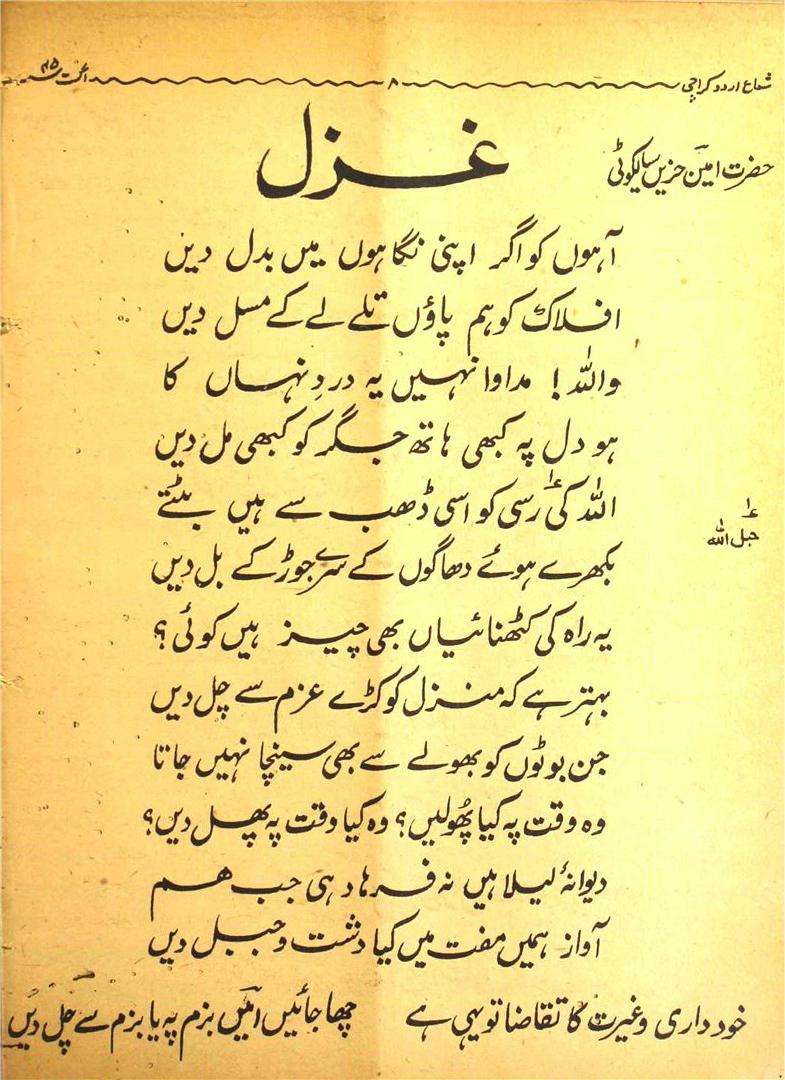 شعاع اردو کراچی ۸ اگست ۴۵ء
غزل
حضرت امین حزیں سیالکوٹی
آہوں کو اگر اپنی نگاہوں میں بدل دیں
افلاک کو ہم پاؤں تلے لے کے مسل دیں
واللہ! مداوا نہیں یہ دردِ نہاں کا
ہو دل پہ کبھی ہاتھ جگر کو کبھی مل دیں
اللہ کی رسی کو اسی ڈھب سے ہیں بٹتے
بکھرے ہوئے دھاگوں کے سرے جوڑ کے بل دیں
یہ راہ کی کٹھنائیاں بھی چیز ہیں کوئی؟
بہتر ہے کہ منزل کو کڑے عزم سے چل دیں
جن بوٹوں کو بھولے سے بھی سینچا نہیں جاتا
وہ وقت پہ کیا پھُولیں؟ وہ کیا وقت پہ پھل دیں؟
دیوانۂ لیلا ہیں نہ فرہاد ہی جب ہم
آواز ہمیں مفت میں کیا دشت و جبل دیں
خود داری و غیرت کا تقاضا تو یہی ہے چھا جائیں امیںؔ بزم پہ یا بزم سے چل دیں
۱؎
حبل اللہ